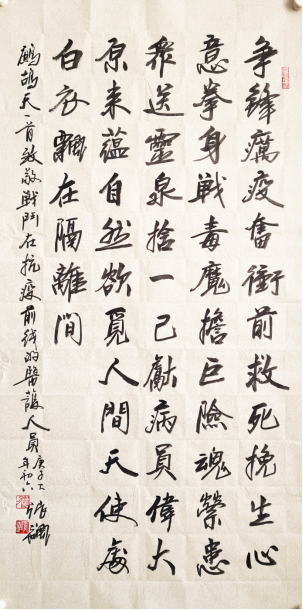 争鋒癘疫奮衝前救死挽生心
意拳身戰毒魔擔巨險魂縈患
衆送靈泉捨一己獻病員偉大
原来蕴自然欲覓人間天使處
白衣翩翩在隔離間
鹧鸪天一首致敬戰鬥在抗疫前线的醫護人員
庚子大年初六